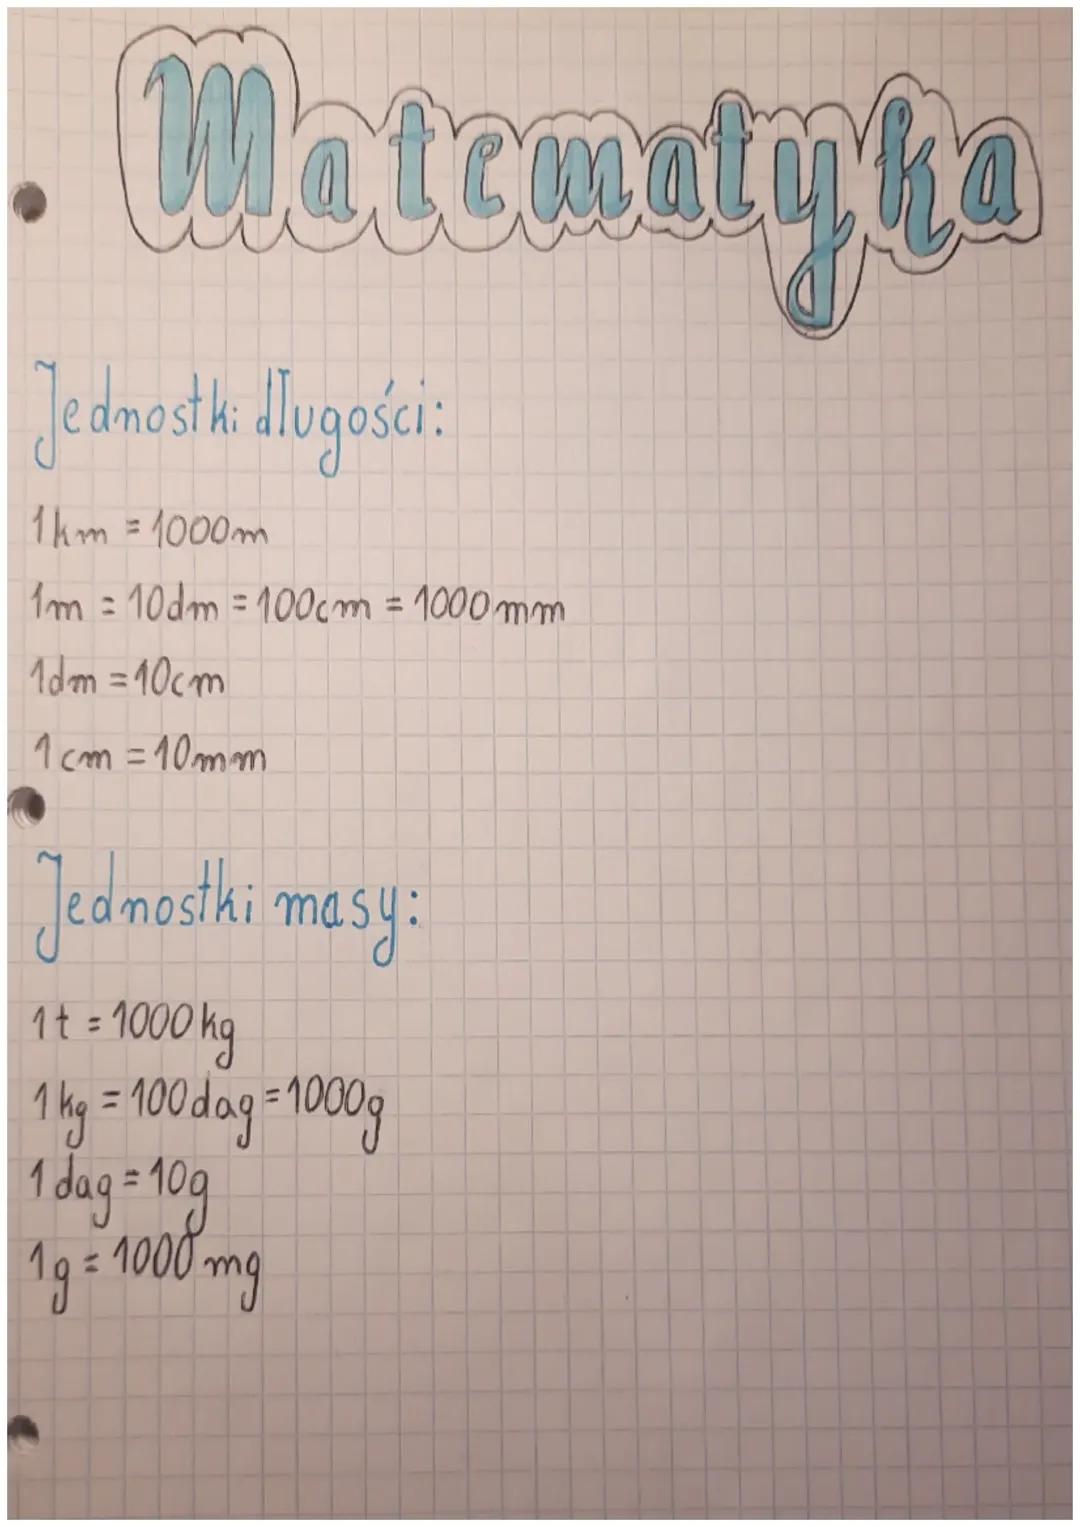 Matematyka
Jednostki długości:
1km = 1000m
1m = 10dm = 100cm = 1000mm
1dm = 10cm
1cm = 10mm
Jednostki masy:
1t = 1000kg
1kg = 100dag = 1000g
1dag = 10g
1g = 1000mg